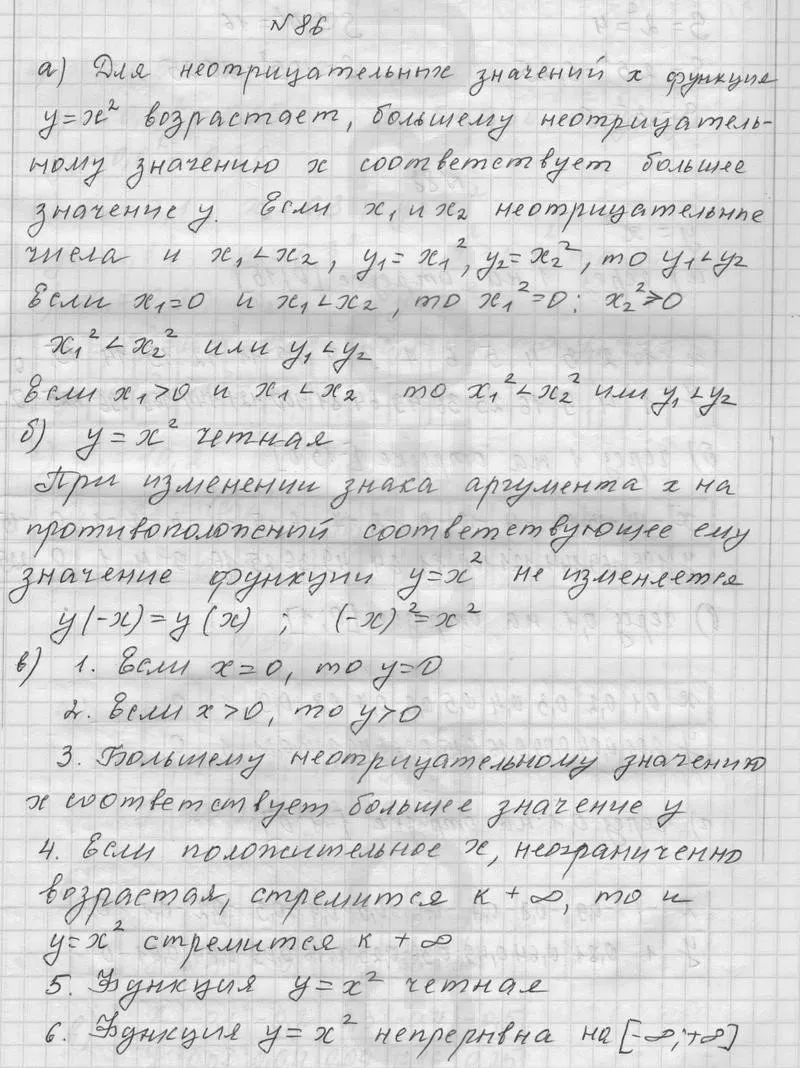 №86
а) Для неотрицательных значений x функция
y=x² возрастает, большему неотрицатель-
ному значению x соответствует большее
значение y. Если x₁ и x₂ неотрицательные
числа и x₁<x₂, y₁=x₁², y₂=x₂², то y₁<y₂
Если x₁=0 и x₁<x₂, то x₁²=0; x₂²>0
x₁²<x₂² или y₁<y₂
Если x₁>0 и x₁<x₂ то x₁²<x₂² или y₁<y₂
б) y=x² четная
При изменении знака аргумента x на
противоположный соответствующее ему
значение функции y=x² не изменяется
y(-x)=y(x) ; (-x)²=x²
в) 1. Если x=0, то y=0
2. Если x>0, то y>0
3. Большему неотрицательному значению
x соответствует большее значение y
4. Если положительное x, неограниченно
возрастая, стремится к +∞, то и
y=x² стремится к +∞
5. Функция y=x² четная
6. Функция y=x² непрерывна на [-∞;+∞]